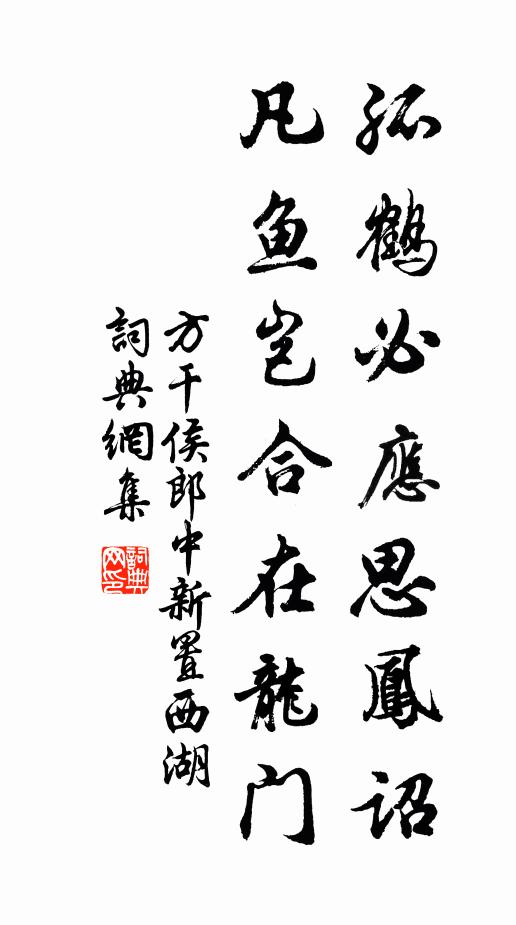 孤鹤必應思鳳詔
凡鱼岂合在龍门
方干侯郎中新置西湖
詞典網集
詞典网印